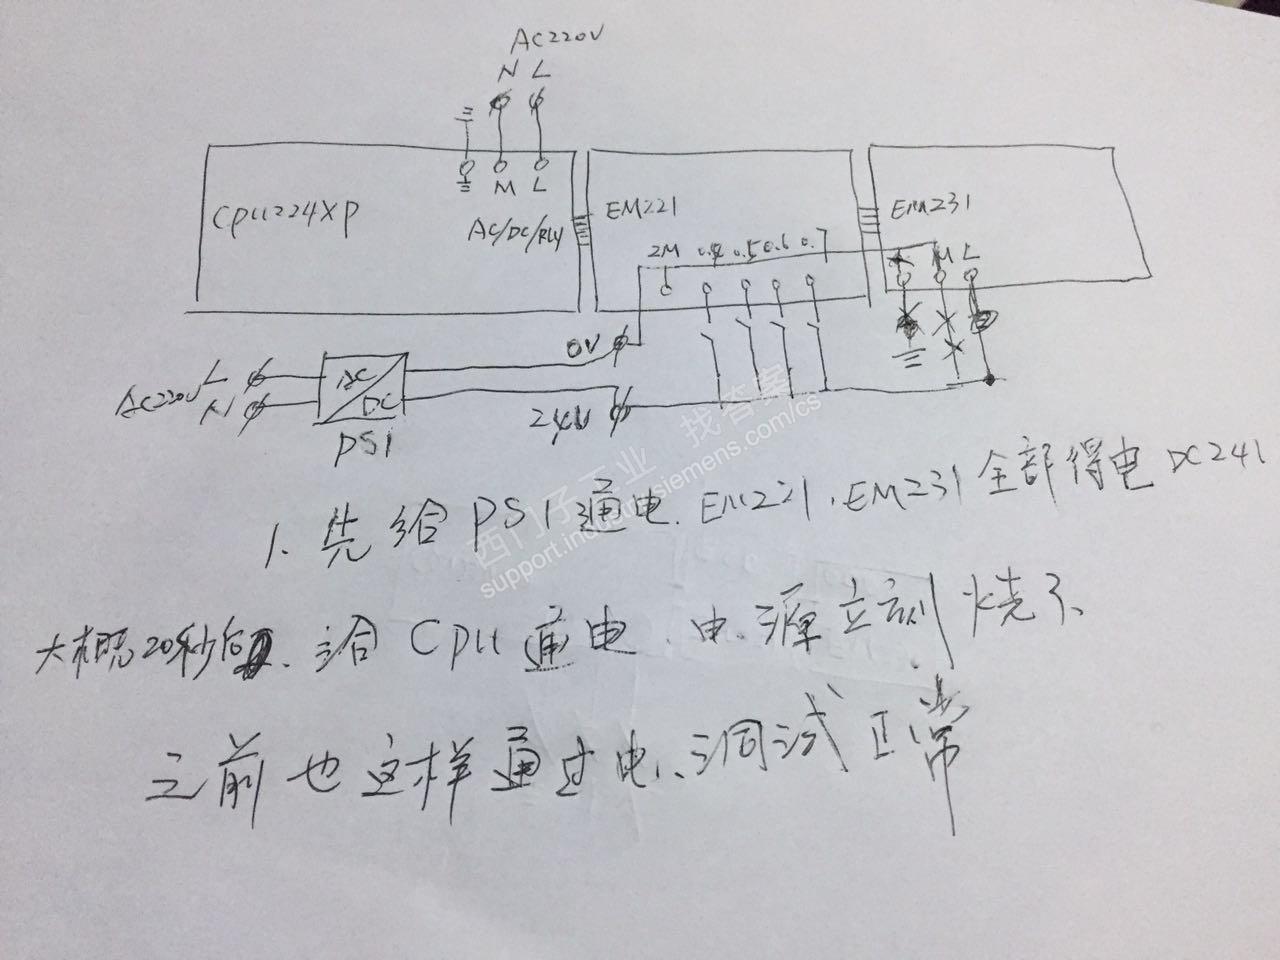 AC220V
N L
M L
CPU224XP
AC/DC/RLY
EM221
2M 0.4 0.5 0.6 0.7
EM231
M L
AC220V
L
N
AC
DC
PS1
0V
24V
1. 先给PS1通电. EM221. EM231全部得电DC24V
大概20秒后. 给CPU通电. 电源立刻烧了.
之前也这样通过电. 调试正常
西门子工业 找答案
support.industry.siemens.com/cs